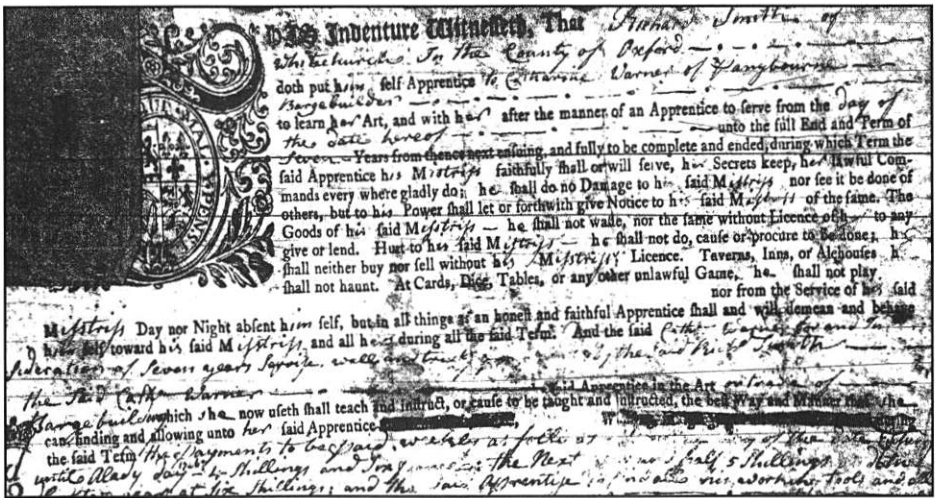 THIS Indenture Witnesseth, That Richard Smith of
Whitchurch In the County of Oxford
doth put him self Apprentice to Catharine Warner of Pangbourne
Bargebuilder
to learn her Art, and with her after the manner of an Apprentice to serve from the day of
the date hereof unto the full End and Term of
Seven Years from thence next ensuing, and fully to be complete and ended, during which Term the
said Apprentice his Mistriss faithfully shall or will serve, her Secrets keep, her lawful Com-
mands every where gladly do; he shall do no Damage to his said Mistriss nor see it be done of
others, but to his Power shall let or forthwith give Notice to his said Mistriss of the same. The
Goods of his said Mistriss he shall not waste, nor the same without Licence of her to any
give or lend. Hurt to his said Mistriss he shall not do, cause or procure to be done; he
shall neither buy nor sell without his Mistriss' Licence. Taverns, Inns, or Alehouses he
shall not haunt. At Cards, Dice, Tables, or any other unlawful Game, he shall not play
nor from the Service of his said
Mistriss Day nor Night absent him self, but in all things as an honest and faithful Apprentice shall and will demean and behave
him self toward his said Mistriss and all hers during all the said Term. And the said Cathe Warner for and In
sideration of Seven years Service well and the said Smith
the Said Cathe Warner said Apprentice in the Art or trade of
Bargebuilding which she now useth shall teach and instruct, or cause to be taught and instructed, the best Way and Manner that she
can, finding and allowing unto her said Apprentice
the said Term the payments to be paid weekly as follows
until Alady day Shillings and the Next half 5 Shillings
at Six Shillings; and the said Apprentice working Tools and